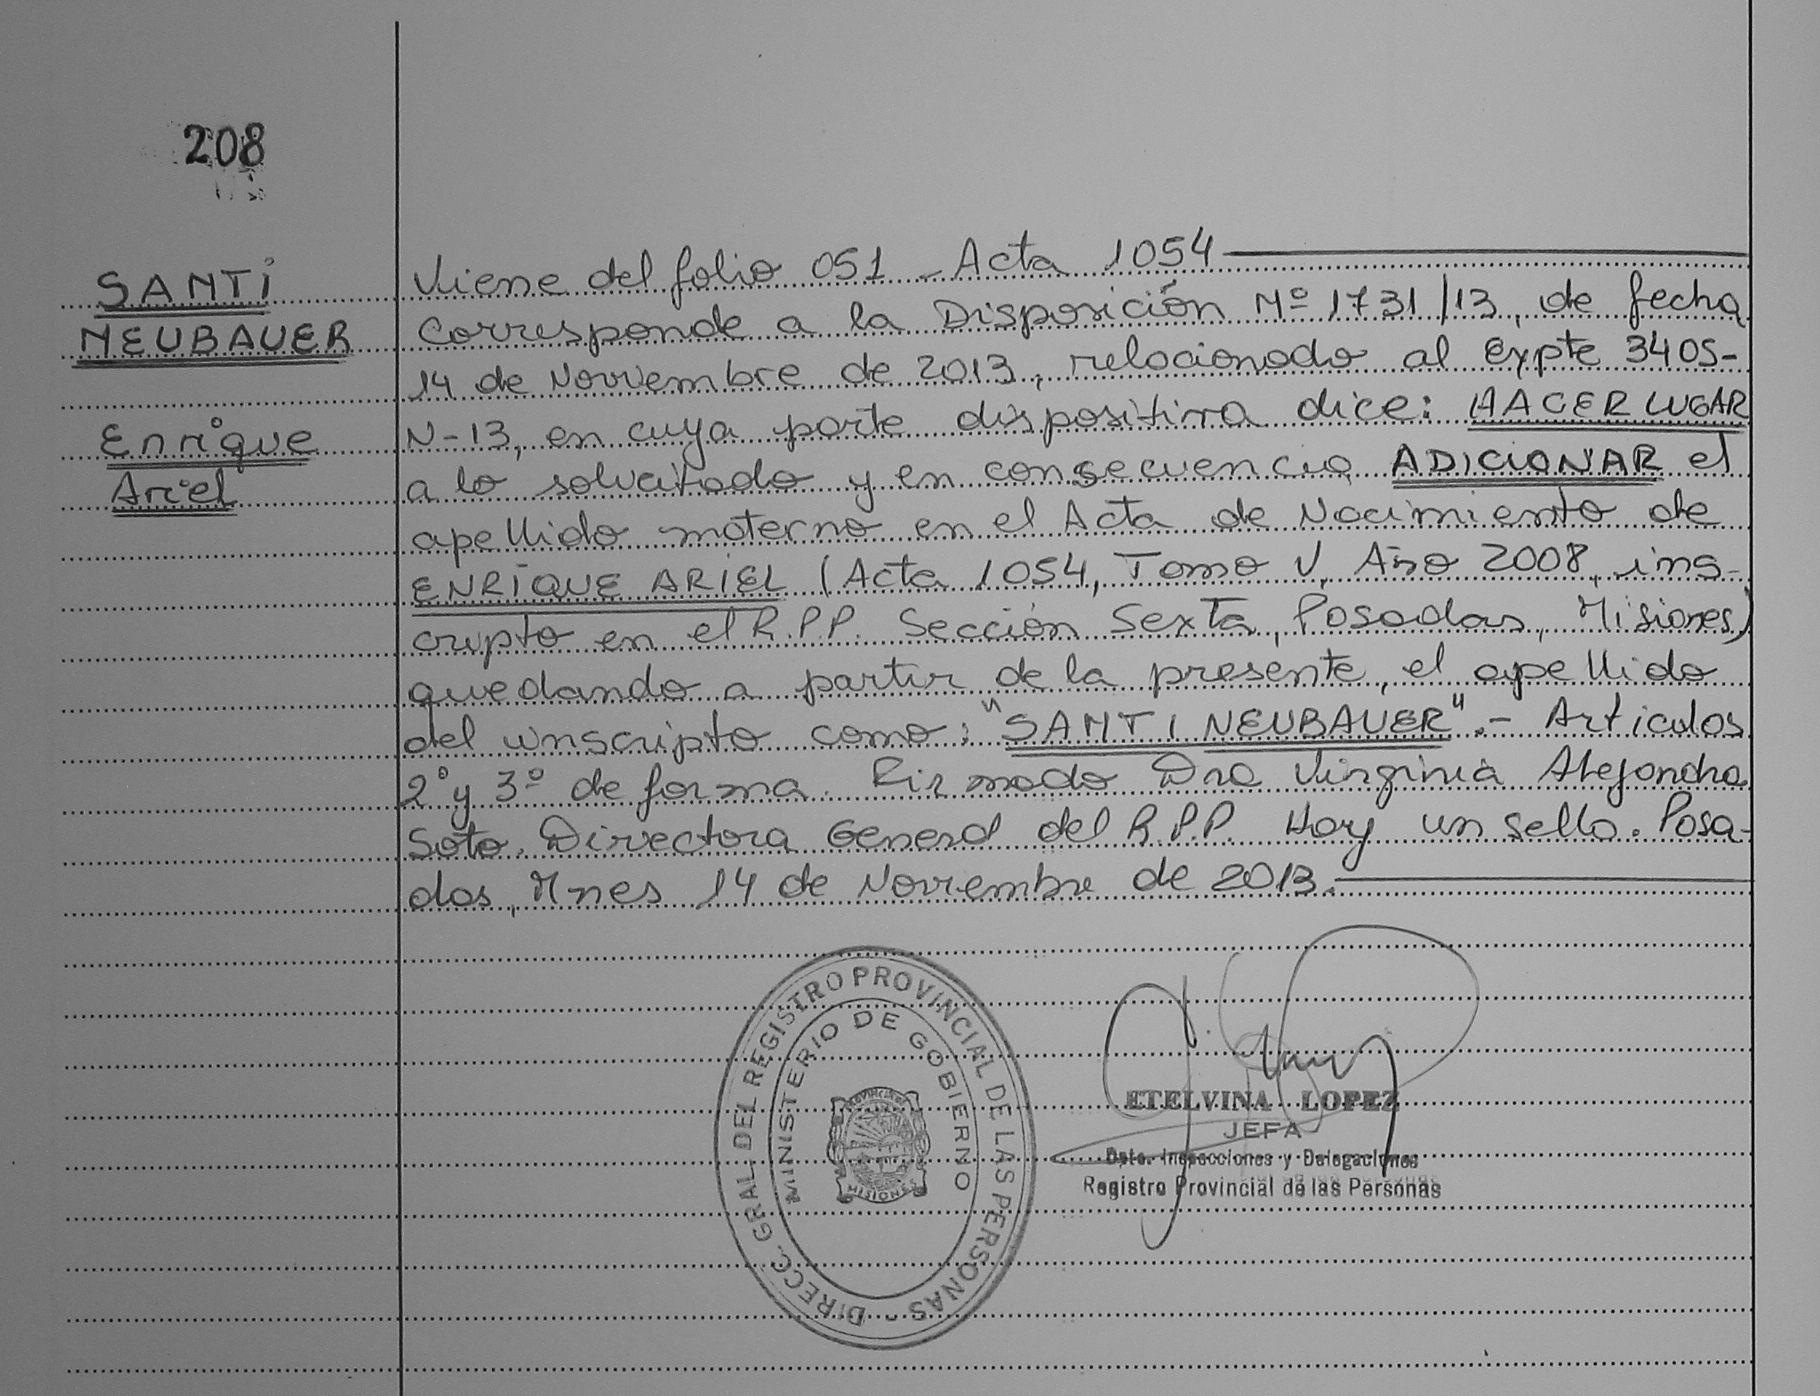 208
SANTI
NEUBAUER
Enrique
Ariel
Viene del folio 051 - Acta 1054
Corresponde a la Disposición Nº 1731/13, de fecha
14 de Noviembre de 2013, relacionado al Expte 3405-
N-13, en cuya parte dispositiva dice: HACER LUGAR
a lo solicitado y en consecuencia ADICIONAR el
apellido materno en el Acta de Nacimiento de
ENRIQUE ARIEL (Acta 1054, Tomo V, Año 2008, ins-
cripto en el R.P.P. Sección Sexta, Posadas, Misiones)
quedando a partir de la presente, el apellido
del inscripto como: "SANTI NEUBAUER".- Articulos
2º y 3º de forma. Firmado Dra Virginia Alejandra
Soto. Directora General del R.P.P. Hay un sello. Posa-
das, Mnes 14 de Noviembre de 2013.
DIRECC. GRAL. DEL REGISTRO PROVINCIAL DE LAS PERSONAS -
MINISTERIO DE GOBIERNO
MISIONES
ETELVINA LOPEZ
JEFA
Dpto. Inspecciones y Delegaciones
Registro Provincial de las Personas